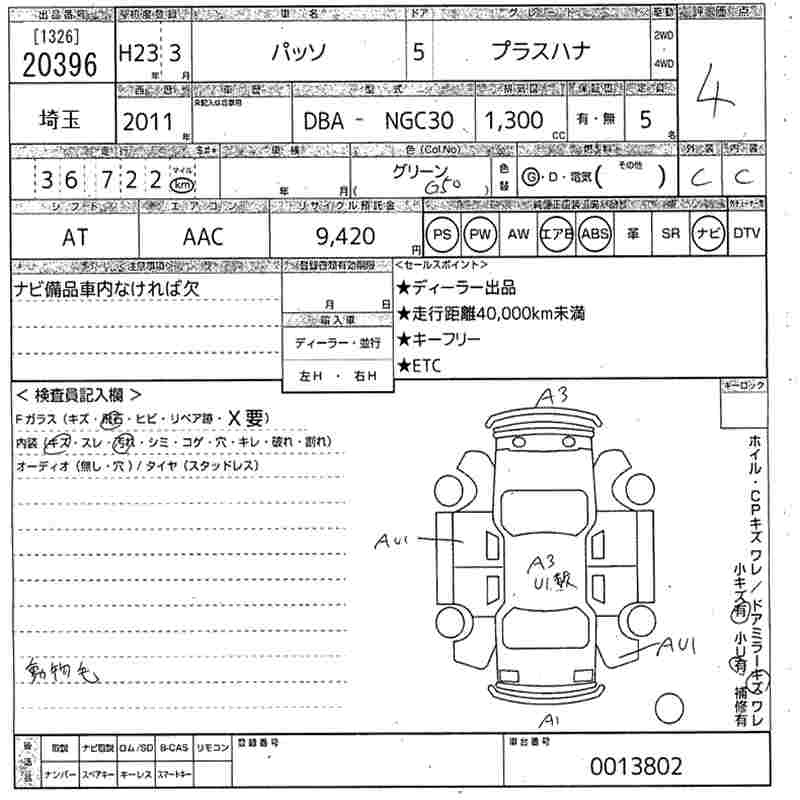 出品番号 初度登録 車名 ドア グレード 駆動 評価点
[1326]
20396 H23年 3月 パッソ 5 プラスハナ 2WD 4WD 4
西暦 車歴 型式 排気量 保証書 定員
埼玉 2011年 DBA - NGC30 1,300cc 有・無 5名
走行 車検 色(Col.No) 燃料 外装 内装
36722 マイル km 年 月 グリーン ( G50 ) 色替 G・D・電気( その他 ) C C
シフト エアコン リサイクル預託金
AT AAC 9,420円 PS PW AW エアB ABS 革 SR ナビ DTV
注意事項 登録書類有効期限 <セールスポイント>
ナビ備品車内なければ欠 月 日 ★ディーラー出品
輸入車 ★走行距離40,000km未満
ディーラー・並行 ★キーフリー
左H ・ 右H ★ETC
< 検査員記入欄 > キーロック
Fガラス(キズ・飛石・ヒビ・リペア跡・X要)
内装(キズ・スレ・汚れ・シミ・コゲ・穴・キレ・破れ・割れ)
オーディオ(無し・穴)/タイヤ(スタッドレス)
A3
AU1
A3
U1.数
AU1
A1
ホイル・CPキズ ワレ/ドアミラーキズ ワレ
小キズ有 小U有 補修有
動物毛
後送品 取説 ナビ取説 ロム/SD B-CAS リモコン 登録番号 車台番号
ナンバー スペアキー キーレス スマートキー 0013802